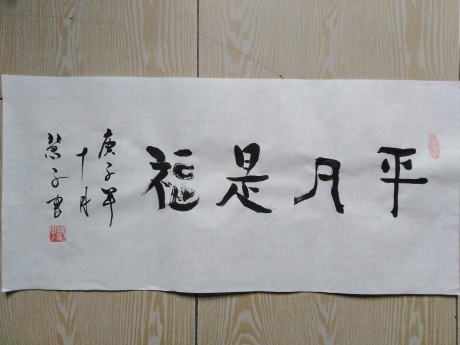 平凡是福
庚子年
十月
慧子書